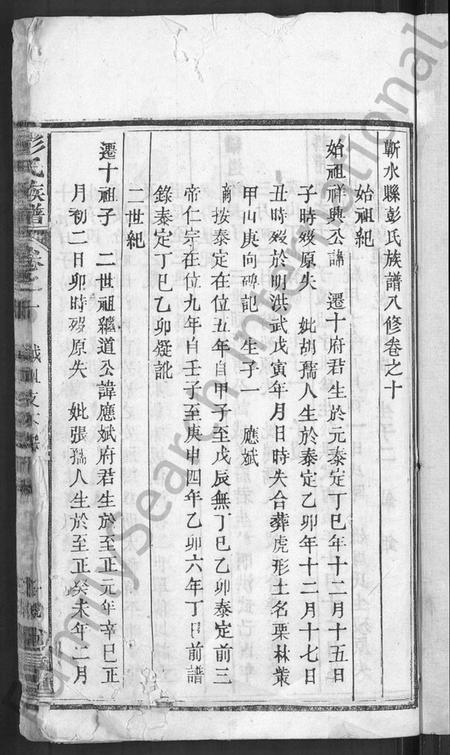 蘄水縣彭氏族譜八修卷之十
始祖紀
始祖祥興公諱 遷十府君生於元泰定丁巳年十二月十五日
子時歿原失 妣胡孺人生於泰定乙卯年十二月十七日
丑時歿於明洪武戊寅年月日時失合葬虎形土名栗林叢
甲山庚向碑記 生子一 應斌
按泰定在位五年自甲子至戊辰無丁巳乙卯泰定前三
帝仁宗在位九年自壬子至庚申四年乙卯六年丁巳前譜
錄泰定丁巳乙卯疑訛
二世紀
遷十祖子 二世祖纘道公諱應斌府君生於至正元年辛巳正
月初二日卯時歿原失 妣張孺人生於至正癸未年二月
彭氏族譜
卷之十
FamilySearch International